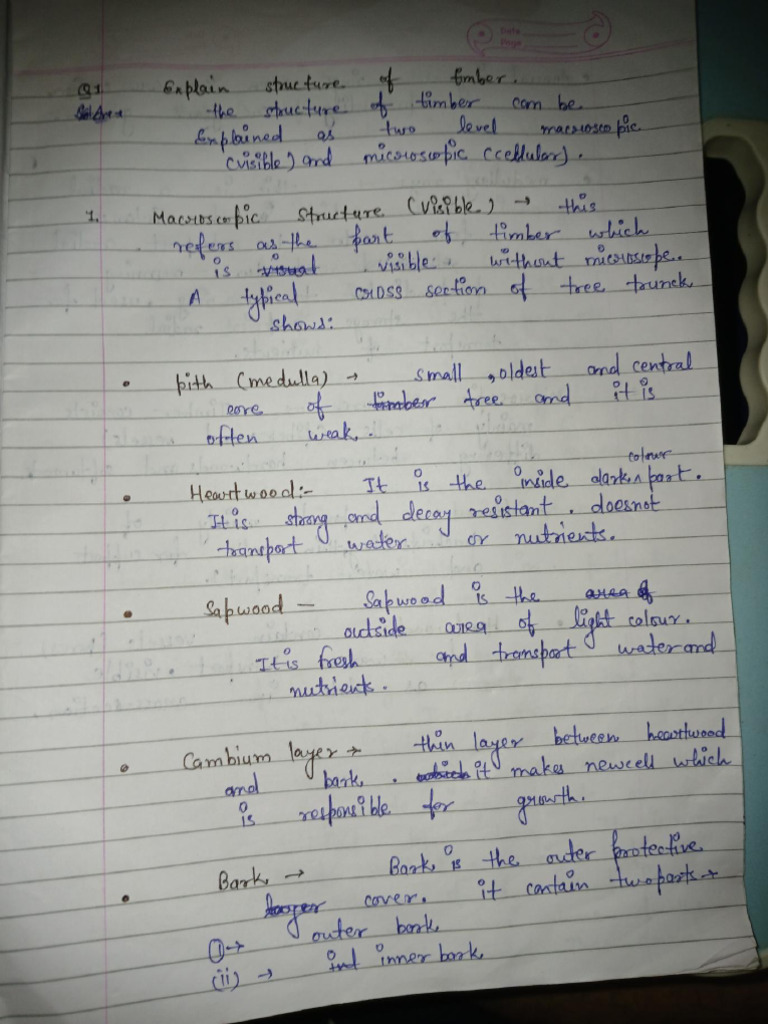 Date
Page
Q1 Explain structure of timber.
Ans the structure of timber can be
Explained as two level macroscopic
(visible) and microscopic (cellular).
1. Macroscopic structure (visible) → this
refers as the part of timber which
is visual visible. without microscope.
A typical cross section of tree trunck
shows:
• pith (medulla) → small, oldest and central
core of timber tree and it is
often weak.
• Heartwood:- It is the inside dark colour part.
It is strong and decay resistant. doesnot
transport water or nutrients.
• Sapwood – Sapwood is the area of
outside area of light colour.
It is fresh and transport water and
nutrients.
• Cambium layer → thin layer between heartwood
and bark. which it makes newcell which
is responsible for growth.
• Bark → Bark is the outer protective
layer cover. it contain two parts →
(i) → outer bark
(ii) → inner bark